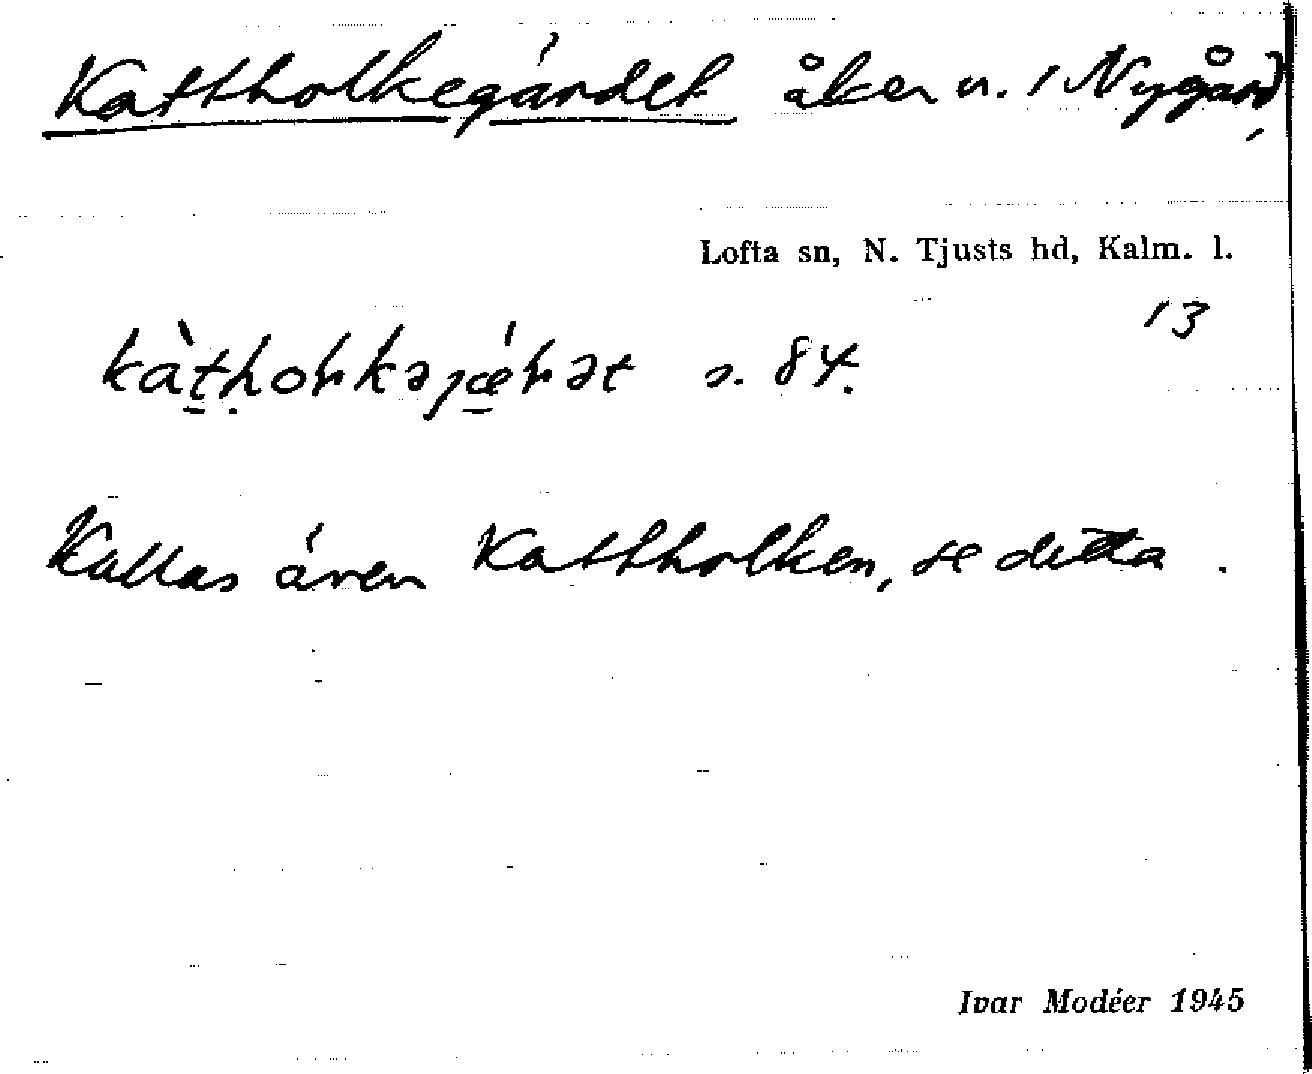 Kattholkegärdet åker u. 1 Nygård,
Lofta sn, N. Tjusts hd, Kalm. l.
13
s. 84.
Kallas även Kattholken, se detta.
Ivar Modéer 1945